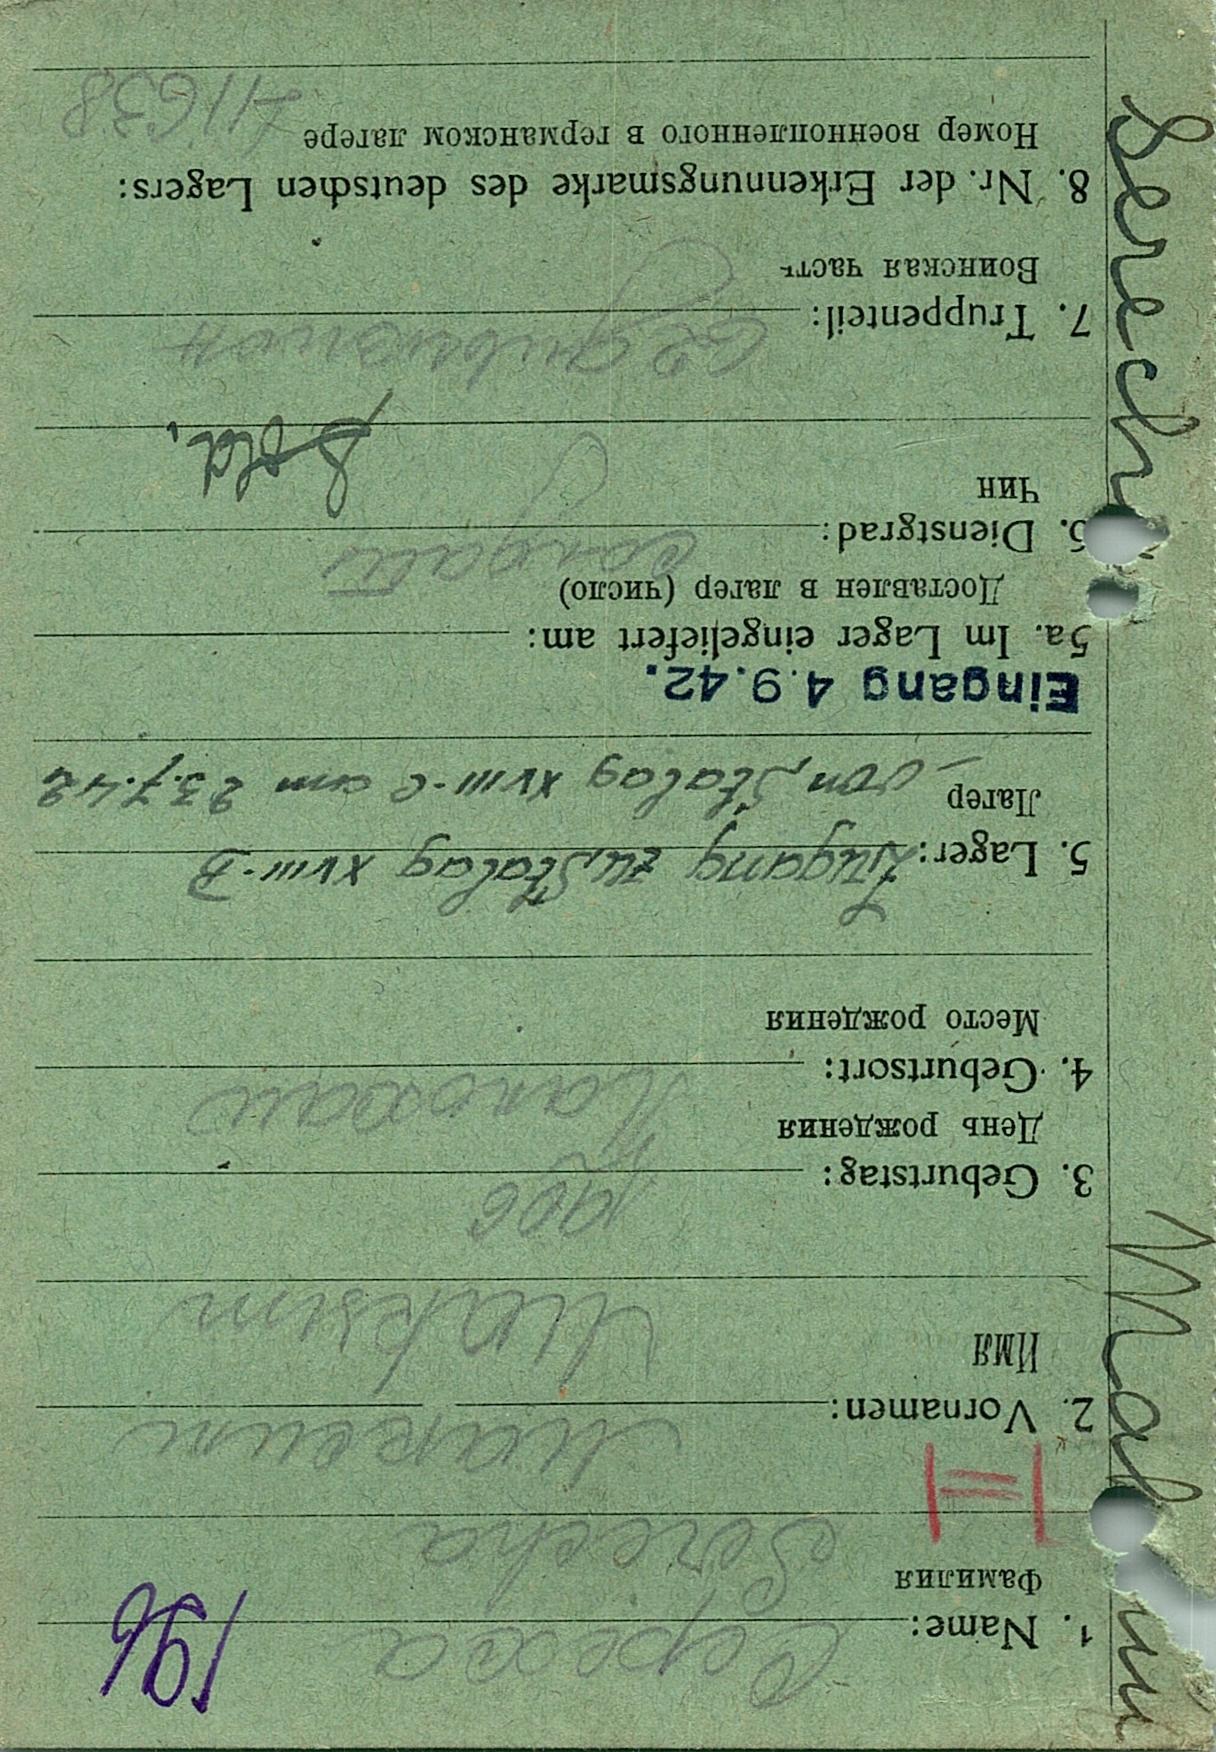 196
1. Name: Сереха
Фамилия
Serecha
2. Vornamen: Максим
Имя
Maksim
3. Geburtstag: 1906
День рождения
4. Geburtsort:
Место рождения
5. Lager: Zugang zu Stalag XVIII-B
Лагер
von Stalag XVIII-C am 23.7.42
Eingang 4.9.42.
5a. Im Lager eingeliefert am:
Доставлен в лагер (число)
6. Dienstgrad: солдат
Чин
Sold.
7. Truppenteil:
Воинская часть
8. Nr. der Erkennungsmarke des deutschen Lagers:
Номер военнопленного в германском лагере